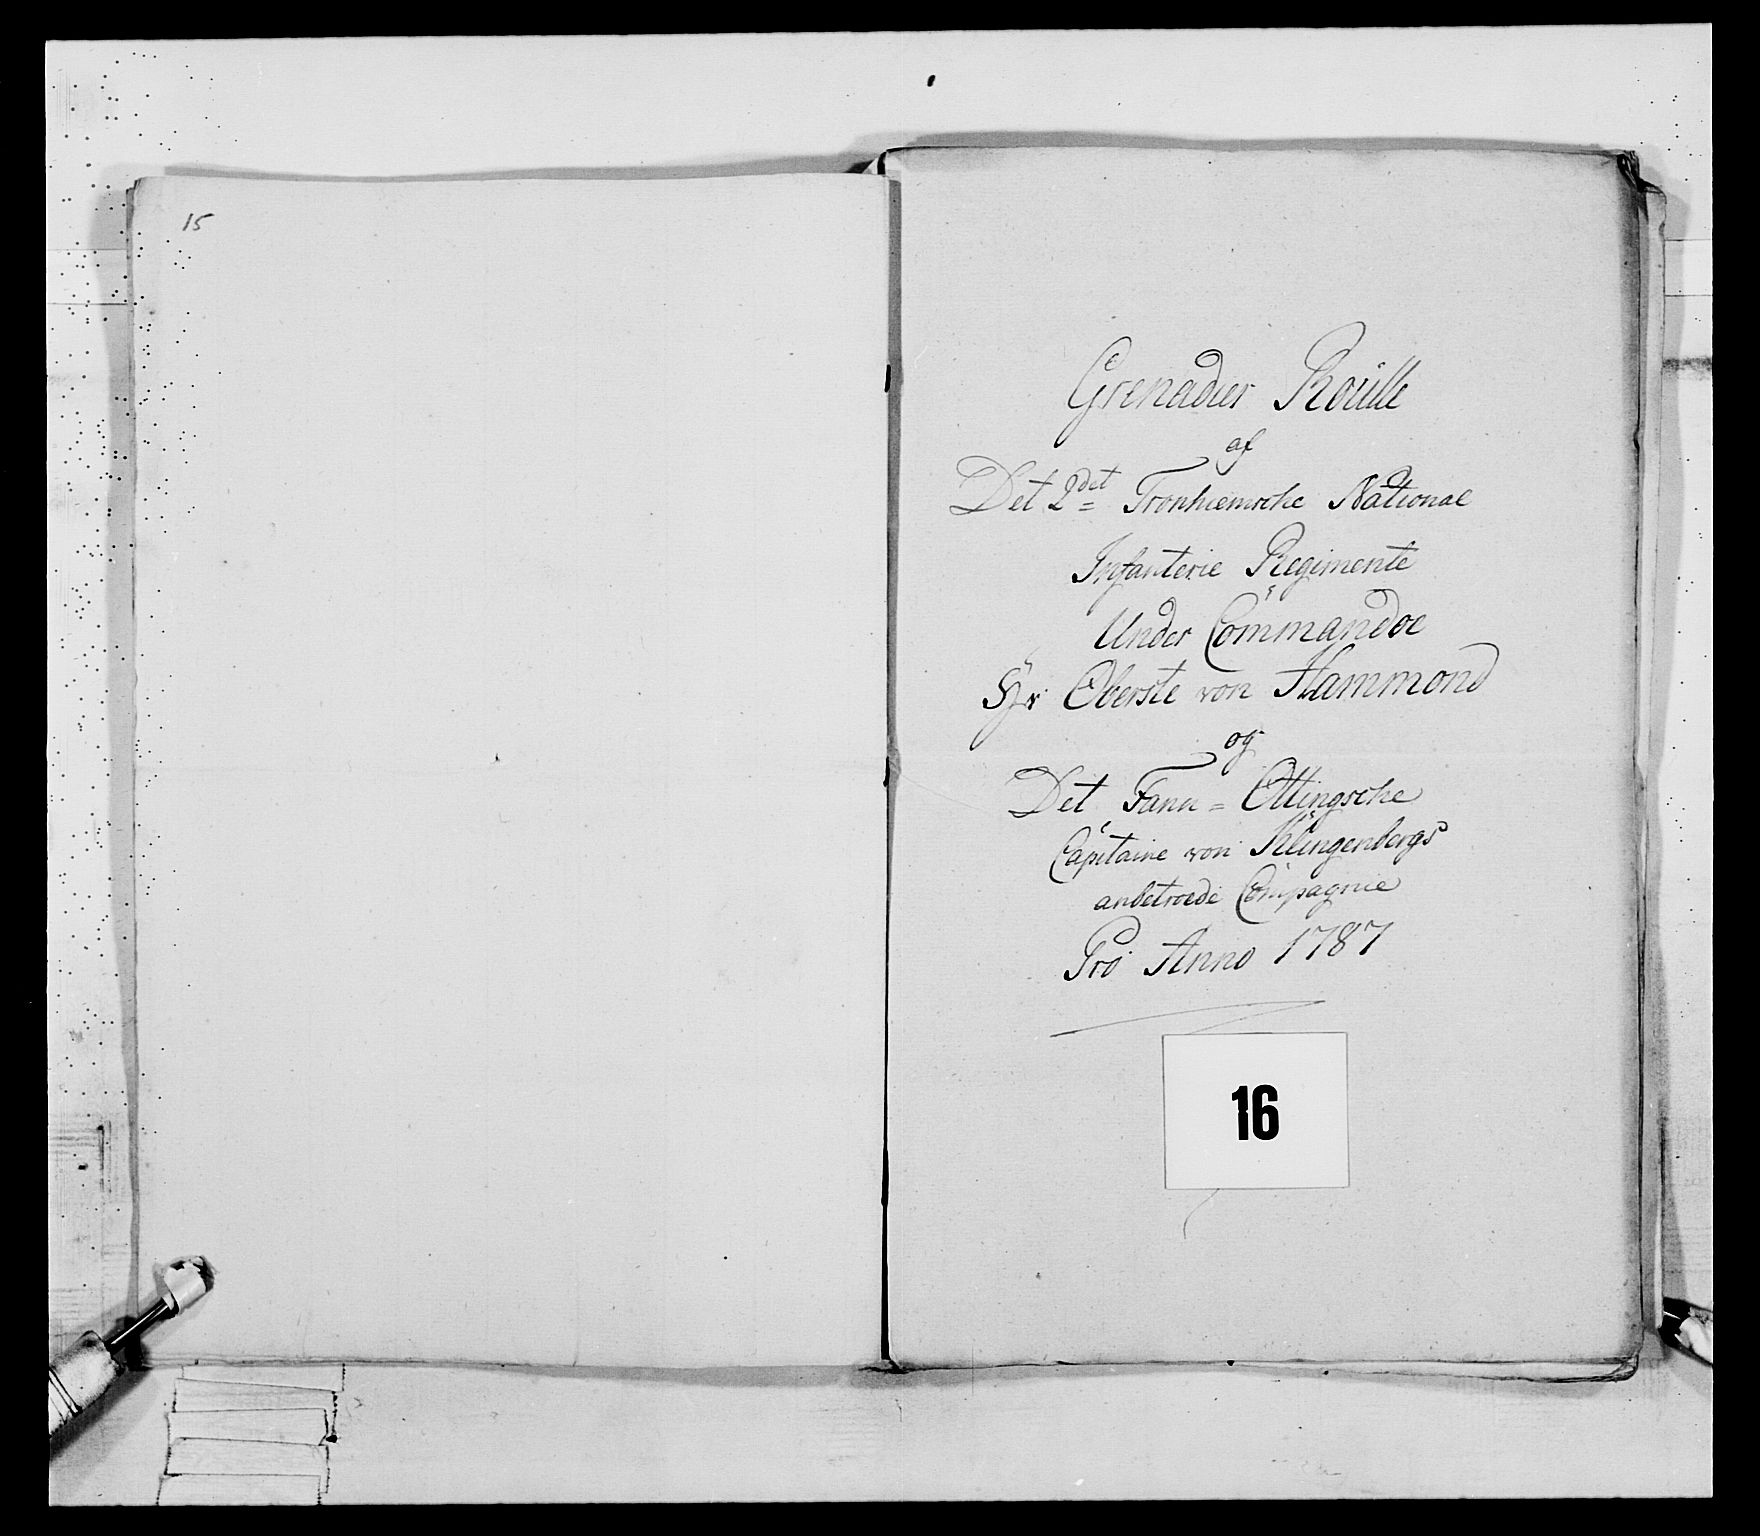 15
Grenadier Roulle
af
Det 2det Tronhiemsche National
Infanterie Regimente
Under Commandoe
Hr Oberste von Hammond
og
Det Fann = Ottingsche
Capitaine von Klingenbergs
anbetroede Compagnie
Pro Anno 1787
16